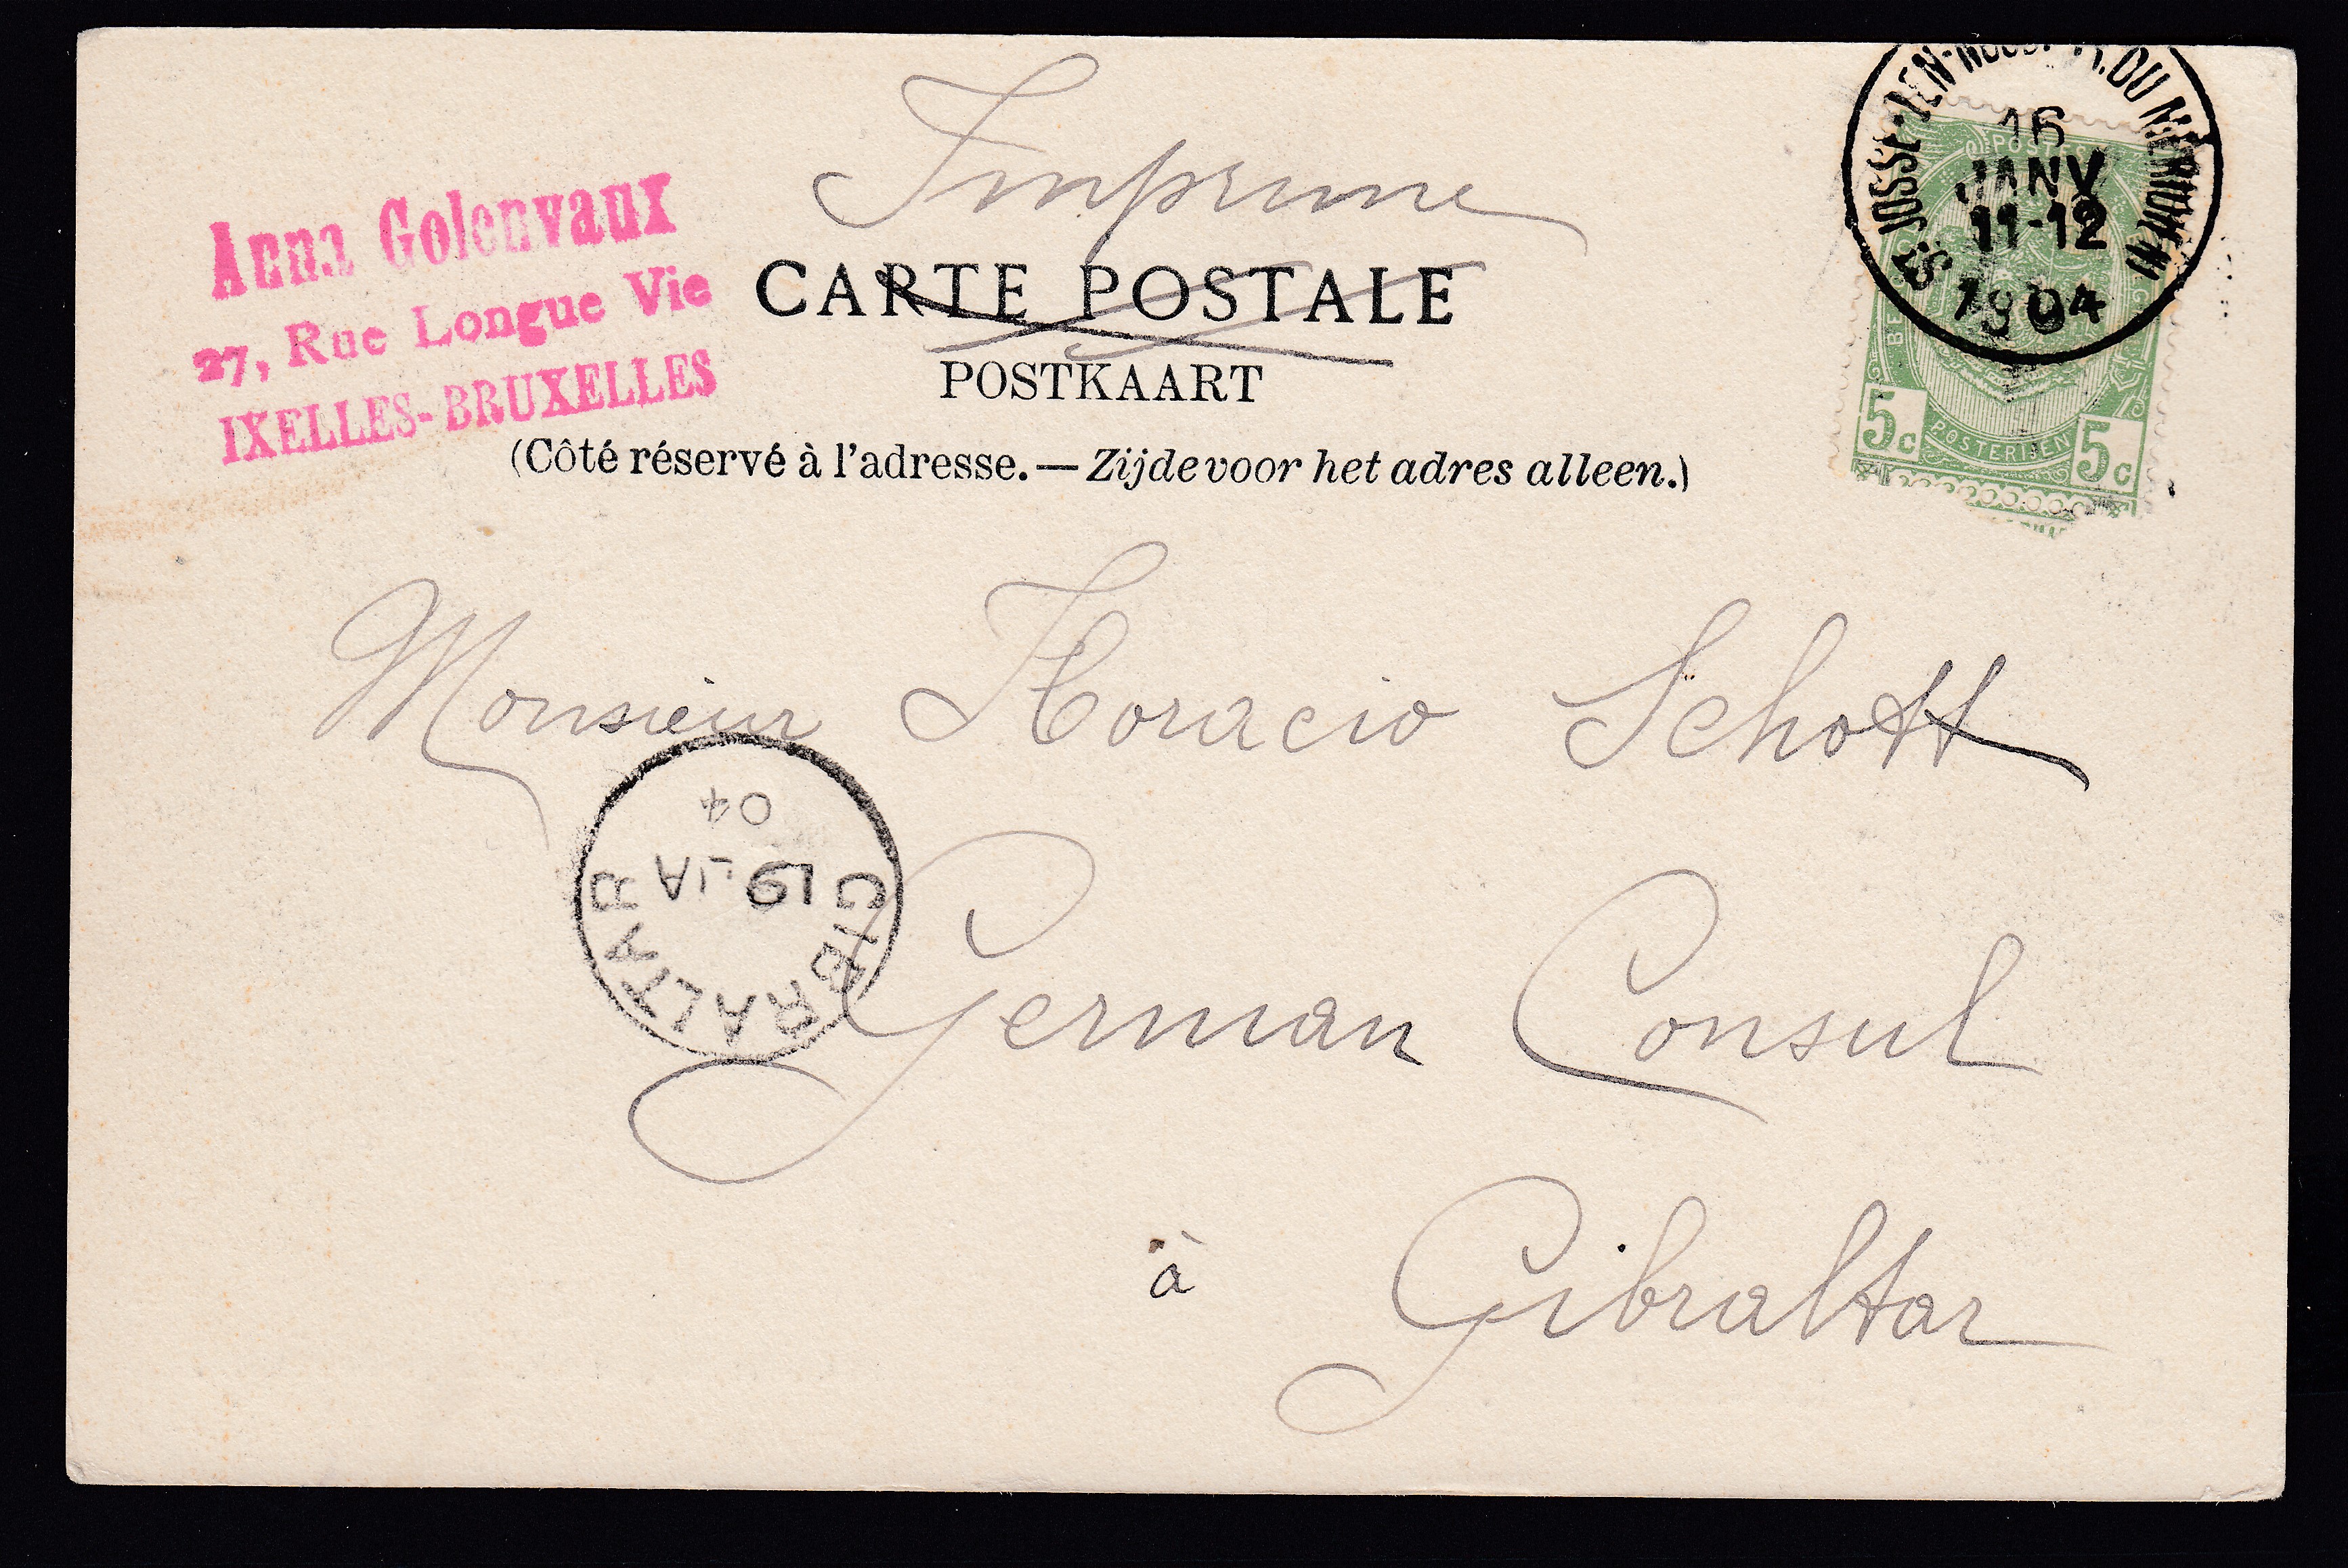 Imprime
Anna Golenvaux
27, Rue Longue Vie
IXELLES-BRUXELLES
CARTE POSTALE
POSTKAART
(Côté réservé à l'adresse. — Zijde voor het adres alleen.)
ST JOSSE-TEN-NOODE (R. DU MÉRIDIEN)
16
JANV
11-12
1904
POSTES
POSTERIJEN
5c 5c
Monsieur Horacio Schott
GIBRALTAR
19 JA
04
German Consul
à Gibraltar